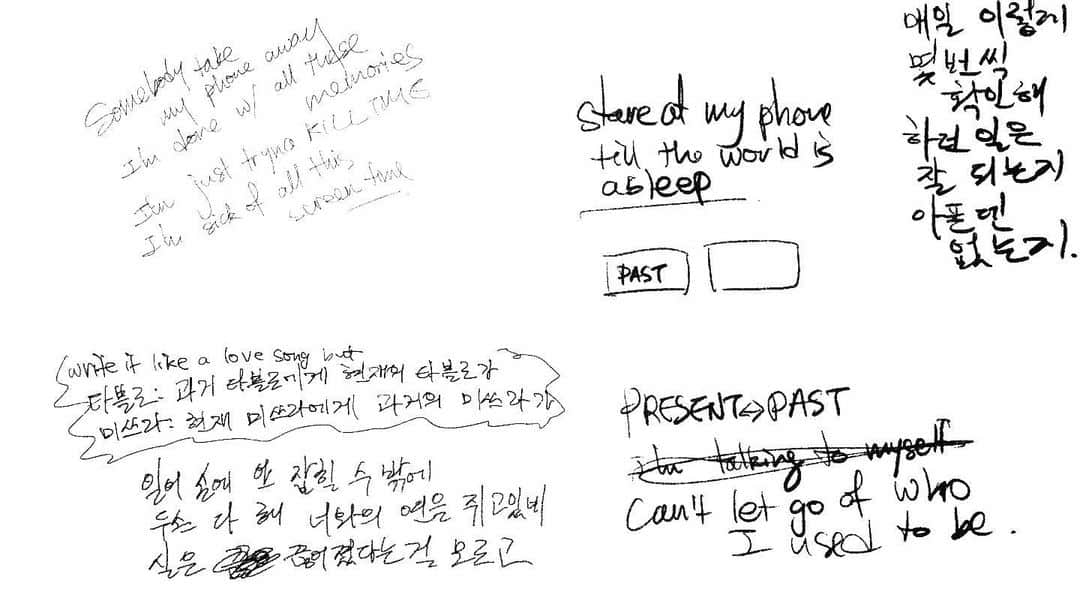 Somebody take
my phone away
I'm done w/ all these
memories
I'm just tryna KILL TIME
I'm sick of all this
screen time
stare at my phone
till the world is
asleep
PAST
매일 이렇게
몇 번씩
확인해
하던 일은
잘 되는지
아픈덴
없는지.
write it like a love song but
타블로: 과거 타블로에게 현재의 타블로가
미쓰라: 현재 미쓰라에게 과거의 미쓰라가
잡힐 수 밖에
다 해 너와의 연을 쥐고있네
실은 끊어졌다는 걸 모르고
PRESENT⇔PAST
I'm talking to myself
Can't let go of who
I used to be.